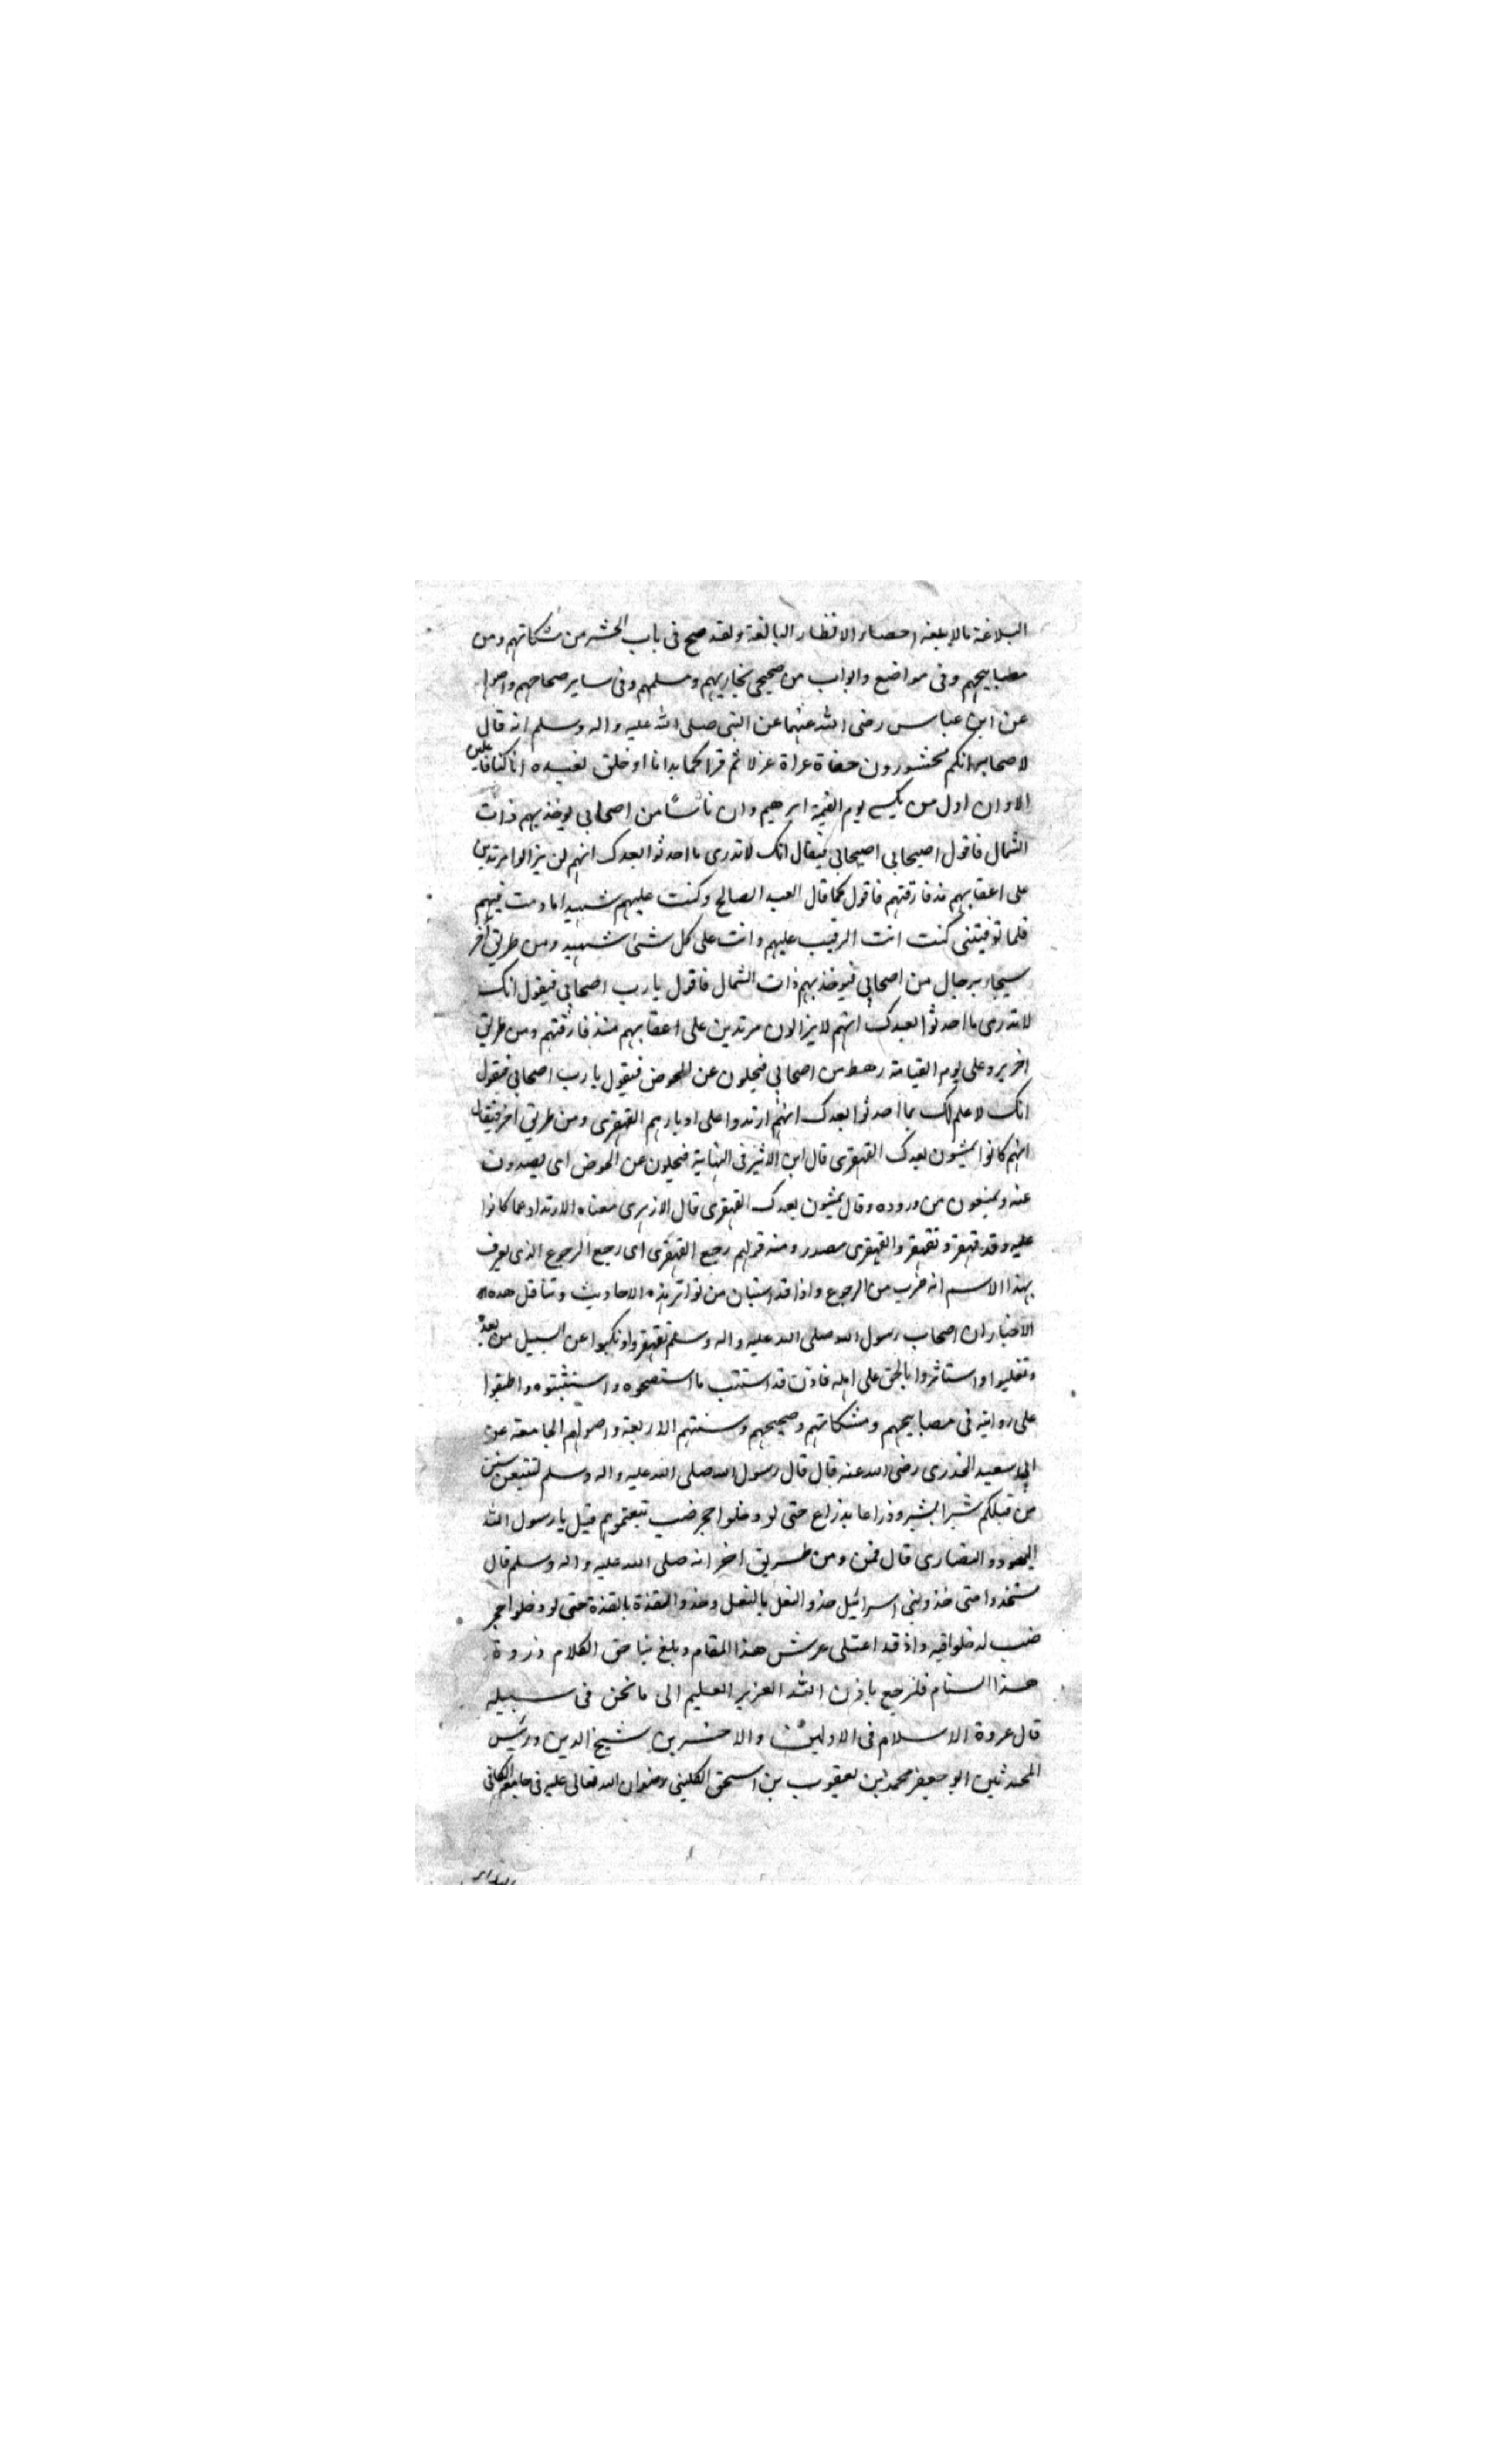 البلاغة مالا يبلغه احصار الانظار البالغة ولقد صح فى باب الحشر من مشكاتهم ومن
مصابيحهم وفى مواضع وابواب من صحيحى بخاريهم ومسلمهم وفى ساير صحاحهم واصولهم
عن ابن عباس رضى الله عنهما عن النبى صلى الله عليه واله وسلم انه قال
لاصحابه انكم محشورون حفاة عراة غرلا ثم قرا كما بدانا اول خلق نعيده انا كنا فاعلين
الا وان اول من يكسى يوم القيمة ابرهيم وان ناسًا من اصحابى يوخذ بهم ذات
الشمال فاقول اصيحابى اصيحابى فيقال انك لا تدرى ما احدثوا بعدك انهم لن يزالوا مرتدين
على اعقابهم مذ فارقتهم فاقول كما قال العبد الصالح وكنت عليهم شهيدا ما دمت فيهم
فلما توفيتنى كنت انت الرقيب عليهم وانت على كل شئ شهيد ومن طريق آخر
سيجاء برجال من اصحابى فيوخذ بهم ذات الشمال فاقول يا رب اصحابى فيقول انك
لا تدرى ما احدثوا بعدك انهم لا يزالون مرتدين على اعقابهم منذ فارقتهم ومن طريق
اخر يرد على يوم القيامة رهط من اصحابى فيحلون عن الحوض فيقول يا رب اصحابى فيقول
انك لا علم لك بما احدثوا بعدك انهم ارتدوا على ادبارهم القهقرى ومن طريق اخر فيقال
انهم كانوا يمشون بعدك القهقرى قال ابن الاثير فى النهاية فيحلون عن الحوض اى يصدون
عنه ويمنعون من وروده وقال يمشون بعدك القهقرى قال الازهرى معناه الارتداد عما كانوا
عليه وقد قهقر وتقهقر والقهقرى مصدر ومنه قولهم رجع القهقرى اى رجع الرجوع الذى يعرف
بهذا الاسم انه ضرب من الرجوع واذا قد استبان من تواتر هذه الاحاديث وتناقل هذه
الاخبار ان اصحاب رسول الله صلى الله عليه واله وسلم تقهقروا ونكبوا عن السبيل من بعده
وتغلبوا واستاثروا بالحق على اهله فاذن قد استتب ما استصحوه واستثبتوه واطبقوا
على روايته فى مصابيحهم ومشكاتهم وصحيحهم وسننهم الاربعة واصولهم الجامعة عن
ابى سعيد الخدرى رضى الله عنه قال قال رسول الله صلى الله عليه واله وسلم لتتبعن سنن
من قبلكم شبرا بشبر وذراعا بذراع حتى لو دخلوا حجر ضب تبعتموهم قيل يا رسول الله
اليهود والنصارى قال فمن ومن طريق اخر انه صلى الله عليه واله وسلم قال
ستحذوا متى حذو بنى اسرائيل حذو النعل بالنعل وحذو القذة بالقذة حتى لو دخلوا حجر
ضب لدخلوا فيه واذ قد اعتلى عرش هذا المقام وبلغ بنا حق الكلام ذروة
هذا السنام فلنرجع باذن الله العزيز العليم الى ما نحن فى سبيله
قال عروة الاسلام فى الاولين والاخرين شيخ الدين ورئيس
المحدثين ابو جعفر محمد بن يعقوب بن اسحق الكلينى رضوان الله تعالى عليه فى جامعه الكافى